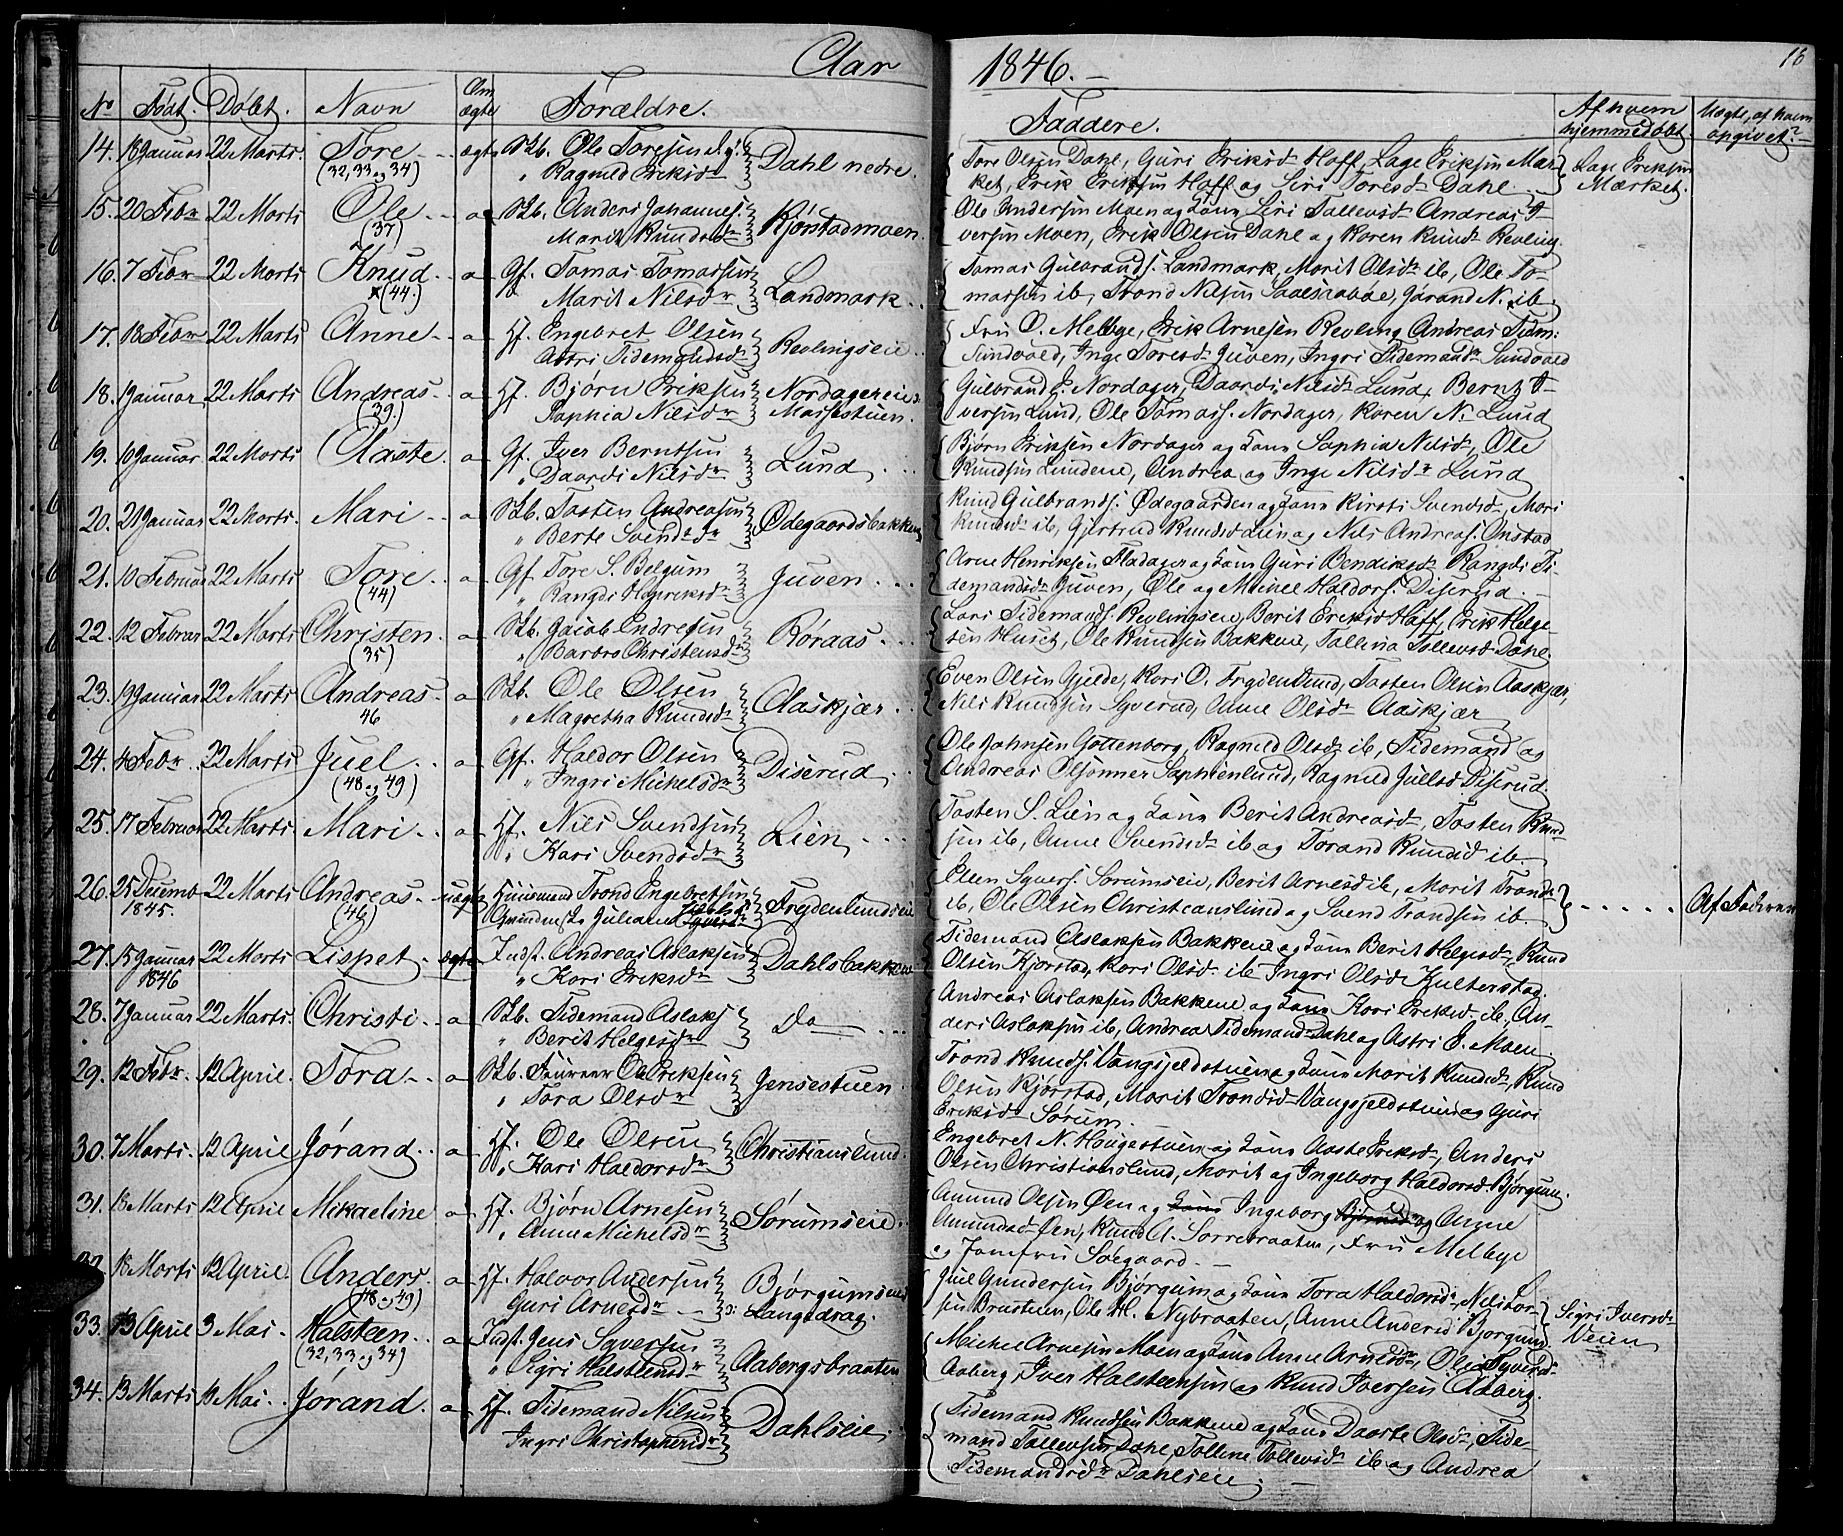 Aar 1846. 16
No Født. Døbt. Navn Om ægte Forældre. Faddere. Af hvem hjemmedøbt Uægte, af hvem opgivet?
14. 18 Januar 22 Marts. Tore (32, 33 og 34) ægte Slb. Ole Toresen " Ragnild Eriksdr Dahl nedre.
Tore Olsen Dahl, Guri Eriksdr Hoff, Lage Eriksen Mær-
ket, Erik Eriksen Hoff og Siri Toresdr Dahl. Lage Eriksen Mærket.
15. 20 Febr 22 Marts Ole (37) a Slb. Anders Johannes. Marit Knudsdr Kjørstadmoen.
Ole Andersen Moen og Kone Siri Tollevsdr Andreas I-
versen Moen, Erik Olsen Dahl og Karen Knudsdr Revling.
16. 7 Febr 22 Marts Knud (44.) a Gf. Tomas Tomassen Marit Nilsdr Landmark.
Tomas Gulbrands. Landmark, Marit Olsdr ib, Ole To-
massen ib, Trond Nilsen, Jørand N. ib
17. 18 Febr 22 Marts Anne a Hf. Engebret Olsen Astri Tidemandsdr Revlingseie
Fru O. Melbye, Erik Arnesen Revling, Andreas Tidm:
Sundvold, Inge Toresdr Juven, Ingri Tidemandsdr Sundvold
18. Januar 22 Marts Andreas (39.) a Hf. Bjørn Eriksen Sophia Nilsdr Nordagereie Massestuen.
Gulbrand E. Nordager, Daardi Nilsdr Lund, Bernt I-
versen Lund, Ole Tomass. Nordager, Karen N. Lund
19. 10 Januar 22 Marts Aaste a Gf. Iver Berntsen " Daardi Nilsdr Lund
Bjørn Eriksen Nordager og Kone Sophia Nilsdr, Ole
Knudsen Lundene, Andrea og Inge Nilsdr Lund
20. 21 Januar 22 Marts. Mari a Slb. Tosten Andreasen " Berte Svendsdr Ødegaardsbakken
Knud Gulbrands. Ødegaarden og Kone Kirsti Svendsdr, Mari
Knudsdr ib, Gjertrud Knudsdr Lien og Nils Andreas. Onstad
21. 10 Februar 22 Marts Tore (44) a Gf. Tore S. Belgum " Rangdi Henriksdr Juven
Arne Henriksen Fladager og Kone Guri Bendiksdr Rangdi Ti-
demandsdr Juven, Ole og Mikkel Haldors. Diserud.
22. 12 Februar 22 Marts Christen (35) a Slb. Jacob Endresen " Barbro Christensdr Røraas
Lars Tidemands. Revlingseie, Berit Eriksdr Hoff, Erik Helge-
sen Huset, Ole Knudsen Bakkene, Tollina Tollevsdr Dahl.
23. 19 Januar 22 Marts Andreas 46 a Slb. Ole Olsen " Magretha Knudsdr Aaskjær
Even Olsen Gjelde, Kari O. Frydenlund, Tosten Olsen Aaskjær,
Nils Knudsen Syverud, Anne Olsdr Aaskjær
24. 4 Febr 22 Marts Juel (48 og 49) a Gf. Haldor Olsen " Ingri Mikkelsdr Diserud
Ole Johnsen Gottenborg, Ragnild Olsdr ib, Tidemand og
Andreas Olsønner Sophienlund, Ragnild Juelsd. Diserud.
25. 17 Februar 22 Marts Mari a Hf. Nils Svendsen " Kari Svendsdr Lien
Tosten S. Lien og Kone Berit Andreasdr, Tosten Knud-
sen ib, Anne Svendsdr ib og Torand Knudsdr ib.
26. 25 Decemb 1845. 22 Marts Andreas (46) uægte Huusmand Trond Engebretsen Juliane Frydenlundseie
Ellen Syvers. Sørumseie, Berit Arnesdr ib, Marit Tronds
ib, Ole Olsen Christianslund og Svend Trondsen ib Af Faderen
27. 15 Januar 1846 22 Marts Lispet ægte Indst. Andreas Aslaksen " Kari Eriksdr Dahlsbakken
Tidemand Aslaksen Bakkene og Kone Berit Helgesdr, Knud
Olsen Kjørstad, Kari Olsdr ib Ingri Olsdr Kulterstad.
28. 7 Januar 22 Marts. Christi a Slb. Tidemand Aslaks " Berit Helgesdr Do
Andreas Aslaksen Bakkene og Kone Kari Eriksd. ib, An-
ders Aslaksen ib, Andrea Tidemandsdr Dahl og Astri E. Moen
29. 12 Febr. 12 April. Tora a Slb. Ole Eriksen " Tora Olsdr Jensestuen
Trond Knuds. Vangsjeldstuen og Kone Marit Knudsdr, Knud
Olsen Kjørstad, Marit Trondsdr Vangsjeldstuen og Guri
Eriksdr Sørum.
30. 7 Marts. 12 April Jørand a Hf. Ole Olsen " Kari Haldorsdr Christianslund
Engebret N. Haugestuen og Kone Aaste Eriksd, Anders
Olsen Christianslund, Marit og Ingeborg Haldorsd. Bjørgum.
31. 18 Marts 12 April Mikaeline a Hf. Bjørn Arnesen " Anne Michelsdr Sørumseie.
Amund Olsen Øen og Kone Ingeborg og Anne
Amundsd Øen, Knud A. Sorrebraaten, Fru Melbye
og Jomfru Søegaard.
32. 18 Marts 12 April. Anders (48 og 49) a Hf. Halvor Andersen Guri Arnesdr Bjørgumseie Langedrag.
Juel Gundersen Bjørgum og Kone Tora Haldorsd. Nils Lar-
sen Brustuen, Ole H. Nybraaten, Anne Andersd Bjørgum Sigri Iversdr Veien
33. 13 April 3 Mai. Halsteen (32, 33 og 34) a Indst. Jens Syversen " Sigri Halsteensdr Aabergsbraaten
Michel Arnesen Moen og Kone Anne Arnesdr, Olia Syversdr
Aaberg, Iver Halsteensen og Knud Iversen Aaberg.
34. 13 Marts Mai. Jørand a Hf. Tidemand Nilsen Ingri Christophersdr Dahlseie
Tidemand Knudsen Bakkene og Kone Daarte Olsdr, Tide-
mand Tollevsen Dahl, Tolline Tollevsdr ib og Andrea
Tidemandsdr Dahlseie